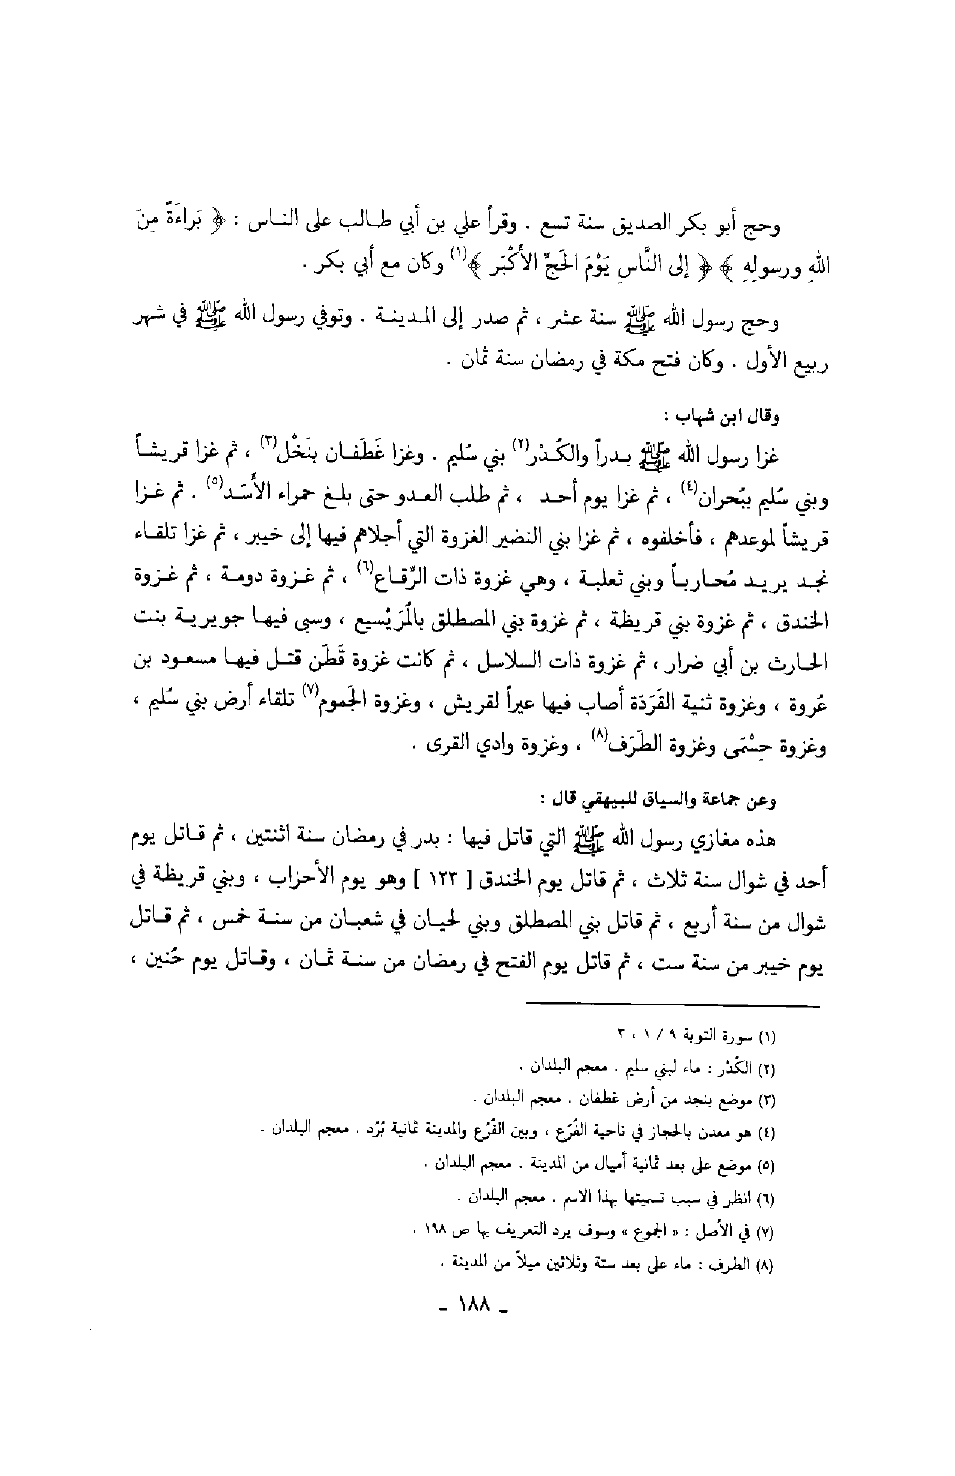 وحج أبو بكر الصديق سنة تسع . وقرأ علي بن أبي طالب على الناس : ﴿ بَراءَةٌ مِنَ
اللهِ ورسولِهِ ﴾ ﴿ إلى النَّاسِ يَوْمَ الحَجِّ الأكْبَرِ ﴾(١) وكان مع أبي بكر .
وحج رسول الله ﷺ سنة عشر ، ثم صدر إلى المدينة . وتوفي رسول الله ﷺ في شهر
ربيع الأول . وكان فتح مكة في رمضان سنة ثمان .
وقال ابن شهاب :
غزا رسول الله ﷺ بدراً والكُدْر(٢) بني سُليم . وغزا غَطَفان بنَخْل(٣) ، ثم غزا قريشاً
وبني سُليم ببُحران(٤) ، ثم غزا يوم أحد ، ثم طلب العدو حتى بلغ حمراء الأسَد(٥) . ثم غزا
قريشاً لموعدهم ، فأخلفوه ، ثم غزا بني النضير الغزوة التي أجلاهم فيها إلى خيبر ، ثم غزا تلقاء
نجد يريد مُحارباً وبني ثعلبة ، وهي غزوة ذات الرِّقاع(٦) ، ثم غزوة دومة ، ثم غزوة
الخندق ، ثم غزوة بني قريظة ، ثم غزوة بني المصطلق بالمُرَيْسيع ، وسبى فيها جويرية بنت
الحارث بن أبي ضرار ، ثم غزوة ذات السلاسل ، ثم كانت غزوة قَطَن قتل فيها مسعود بن
عُروة ، وغزوة ثنية القَرَدَة أصاب فيها عيراً لقريش ، وغزوة الجَموم(٧) تلقاء أرض بني سُليم ،
وغزوة حِسْمَى وغزوة الطَرَف(٨) ، وغزوة وادي القرى .
وعن جماعة والسياق للبيهقي قال :
هذه مغازي رسول الله ﷺ التي قاتل فيها : بدر في رمضان سنة اثنتين ، ثم قاتل يوم
أحد في شوال سنة ثلاث ، ثم قاتل يوم الخندق [ ١٢٣ ] وهو يوم الأحزاب ، وبني قريظة في
شوال من سنة أربع ، ثم قاتل بني المصطلق وبني لحيان في شعبان من سنة خمس ، ثم قاتل
يوم خيبر من سنة ست ، ثم قاتل يوم الفتح في رمضان من سنة ثمان ، وقاتل يوم حُنين ،
(١) سورة التوبة ٩ / ١ ، ٣
(٢) الكُدْر : ماء لبني سليم . معجم البلدان .
(٣) موضع بنجد من أرض غطفان . معجم البلدان .
(٤) هو معدن بالحجاز في ناحية الفُرْع ، وبين الفُرْع والمدينة ثمانية بُرُد . معجم البلدان .
(٥) موضع على بعد ثمانية أميال من المدينة . معجم البلدان .
(٦) انظر في سبب تسميتها بهذا الاسم . معجم البلدان .
(٧) في الأصل : « الجموع » وسوف يرد التعريف بها ص ١٩٨ .
(٨) الطرف : ماء على بعد ستة وثلاثين ميلاً من المدينة .
ـ ١٨٨ ـ